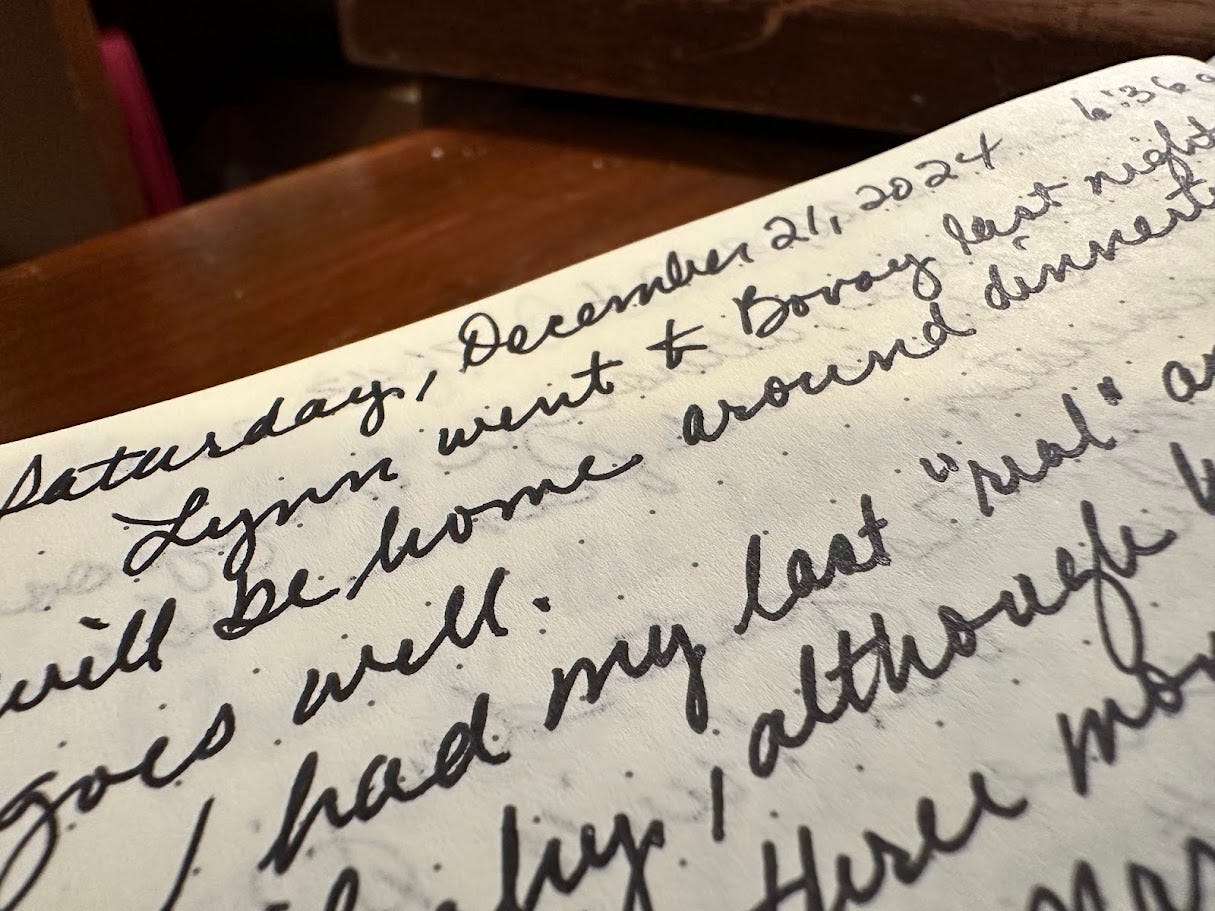 Saturday, December 21, 2024 6:36 a
Lynn went to Bovay last night
will be home around dinnert
goes well.
I had my last "real" a
, although
three mo